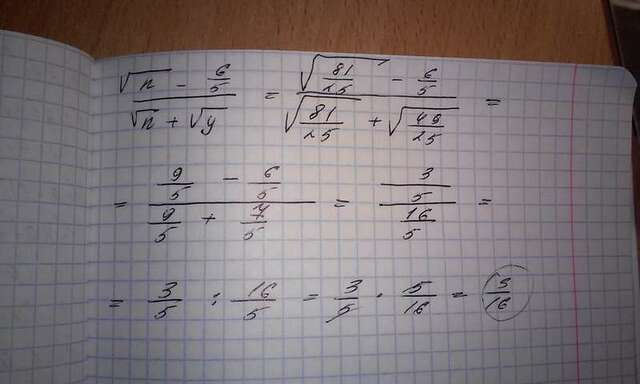 (√n - 6/5)/(√n + √y) = (√(81/25) - 6/5)/(√(81/25) + √(49/25)) =
= (9/5 - 6/5)/(9/5 + 7/5) = (3/5)/(16/5) =
= 3/5 : 16/5 = 3/5 · 5/16 = 3/16